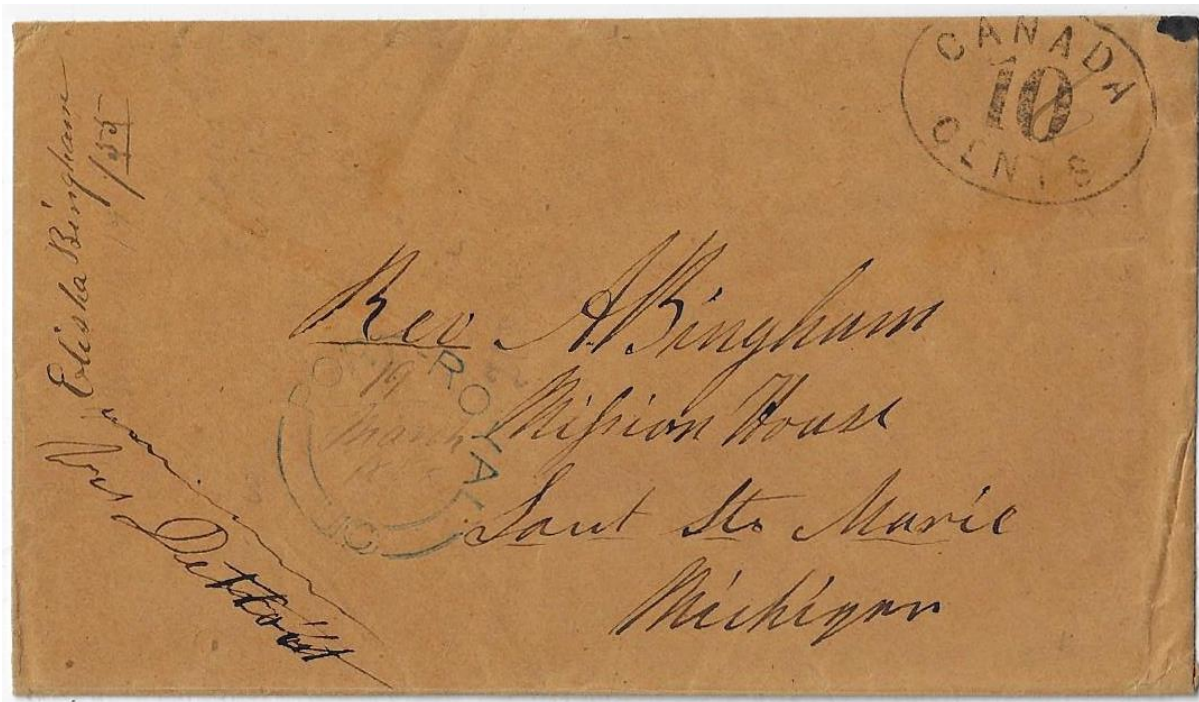 CANADA
10
CENTS
Elisha Bingham
/55
Rev A. Bingham
Mission House
Saut Ste Marie
Michigan
ROYAL
19
March
Detroit